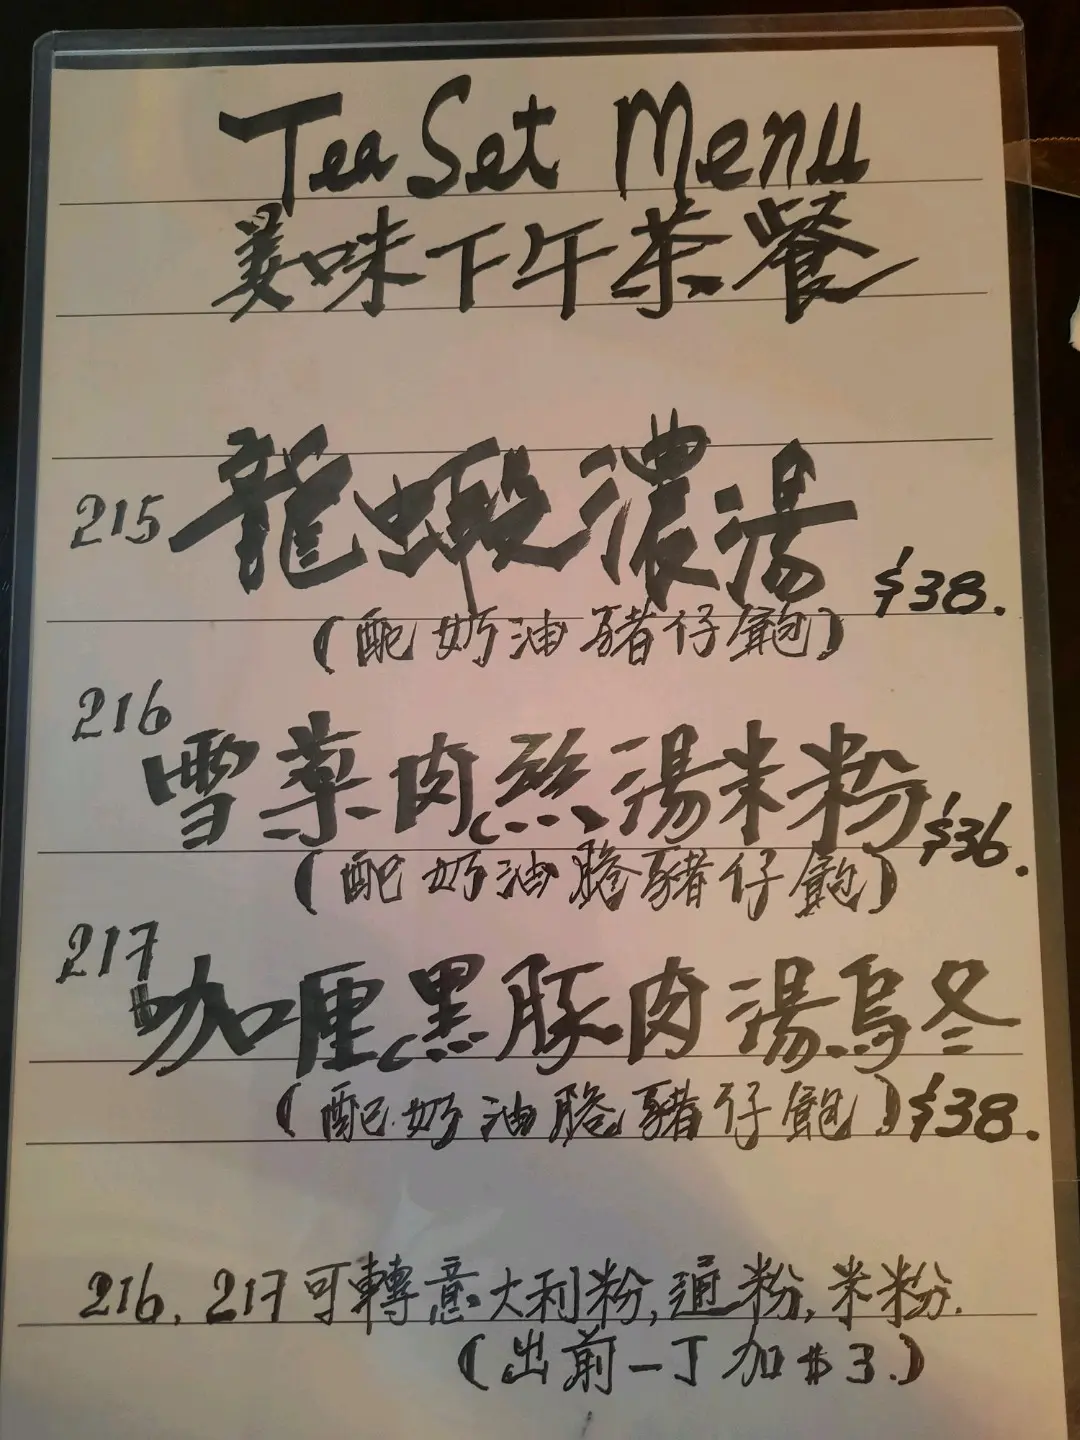 Tea Set Menu
美味下午茶餐
215 龍蝦濃湯 $38.
(配奶油豬仔飽)
216 雪菜肉絲湯米粉 $36.
(配奶油脆豬仔飽)
217 咖喱黑豚肉湯烏冬
(配奶油脆豬仔飽) $38.
216, 217可轉意大利粉,通粉,米粉.
(出前一丁加$3.)